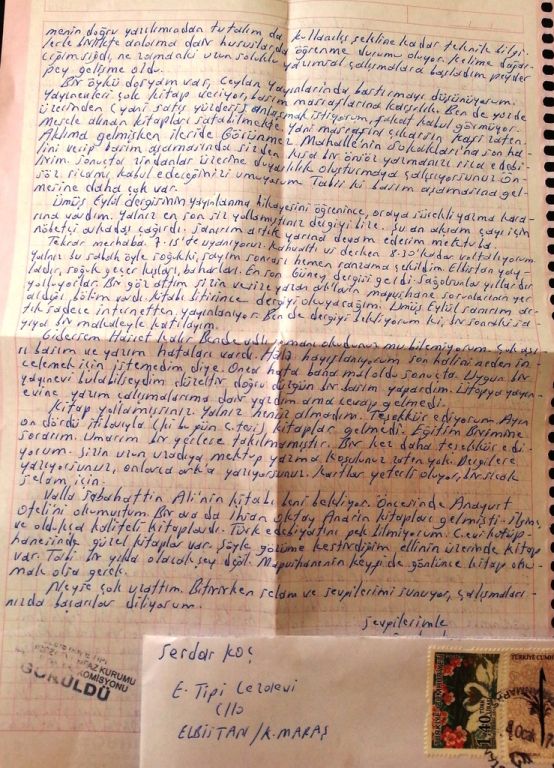 menin doğru yazılımından tutalım da kullanılış şekline kadar teknik bilgi-
lerle birlikte anlatıma dair hususlarda öğrenme durumu oluyor. Kelime dağar-
cığım sığdı, ne zamandaki uzun soluklu yazımsal çalışmalara başladım peyder
pey gelişme oldu.
Bir öykü dosyam var, Ceylan Yayınlarında bastırmayı düşünüyorum.
Yayınevleri çok kitap veriyor, basım masraflarına karşılık. Ben de yüzde
üzerinden (yani satış yüzdesi) anlaşmak istiyorum, fakat kabul görmüyor.
Mesele alınan kitapları satabilmekte yani masrafını çıkarsın kâfi zaten.
Aklıma gelmişken ileride Görünmez Mahalle'nin Sokakları'na son ha-
lini verip basım aşamasında sizden kısa bir önsöz yazmanızı rica edebi-
lirim. Sonuçta zindanlar üzerine duyarlılık oluşturmaya çalışıyorsunuz. Ön-
söz ricamı kabul edeceğinizi umuyorum. Tabii ki basım aşamasına gel-
mesine daha çok var.
Ümüş Eylül dergisinin yayınlanma hikayesini öğrenince, oraya sürekli yazma kara-
rına vardım. Yalnız en son siz yollamıştınız dergiyi bize. Şu an akşam çayı için
nöbetçi arkadaş çağırdı. Sanırım artık yarına devam ederim mektuba.
Tekrar merhaba. 7.15'te uyanıyoruz. Kahvaltı vs derken 8.30'kadar voltalıyorum.
Yalnız bu sabah öyle soğuktu ki, sayım sonrası hemen ranzama çekildim. Elbistan yay-
ladır, soğuk geçer kışları, baharları. En son Güney dergisi geldi. Sağolsunlar yıllardır
yolluyorlar. Bir göz attım sizin ve size yazan ark'ların mapushane sorunlarının yer
aldığı bölüm vardı. Kitabı bitirince dergiyi okuyacağım. Ümüş Eylül sanırım ar-
tık sadece internetten yayınlanıyor. Ben de dergiyi bekliyorum ki, bir sonraki sa-
yıya bir makaleyle katılayım.
Gidersem Hasret Kalır Bende adlı romanı okudunuz mu bilmiyorum. Çok aşı-
rı basım ve yazım hataları vardı. Hâlâ hayıflanıyorum son halini neden in-
celemek için istemedim diye. Onca hata bana maloldu sonuçta. Uygun bir
yayınevi bulabilseydim düzeltir doğru düzgün bir basım yapardım. Ütopya yayın-
evine yazım çalışmalarıma dair yazdım ama cevap gelmedi.
Kitap yollamışsınız. Yalnız henüz almadım. Teşekkür ediyorum. Ayın
on dördü itibariyle (ki bu gün c.tesi), kitaplar gelmedi. Eğitim Birimine
sorarım. Umarım bir yerlere takılmamıştır. Bir kez daha teşekkür edi-
yorum. Sizin uzun uzadıya mektup yazma koşulunuz zaten yok. Dergilere
yazıyorsunuz, onlarca ark'a yazıyorsunuz. Kartlar yeterli oluyor, bir sıcak
selam için.
Valla Sabahattin Ali'nin kitabı beni bekliyor. Öncesinde Anayurt
Oteli'ni okumuştum. Bir ara da İhsan Oktay Anar'ın kitapları gelmişti. İlginç
ve oldukça kaliteli kitaplardı. Türk edebiyatını pek bilmiyorum. Cezaevi kütüp-
hanesinde güzel kitaplar var. Şöyle gözüme kestirdiğim ellinin üzerinde kitap
var. Tabi bir yılda olacak şey değil. Mapushanenin keyfi de gönlünce kitap oku-
mak olsa gerek.
Neyse çok uzattım. Bitirirken selam ve sevgilerimi sunuyor, çalışmaları-
nızda başarılar diliyorum.
Sevgilerimle
İNFAZ KURUMU
KOMİSYONU
GÖRÜLDÜ
Serdar Koç
E. Tipi Cezaevi
C/10
ELBİSTAN/K.MARAŞ
TÜRKİYE CUM